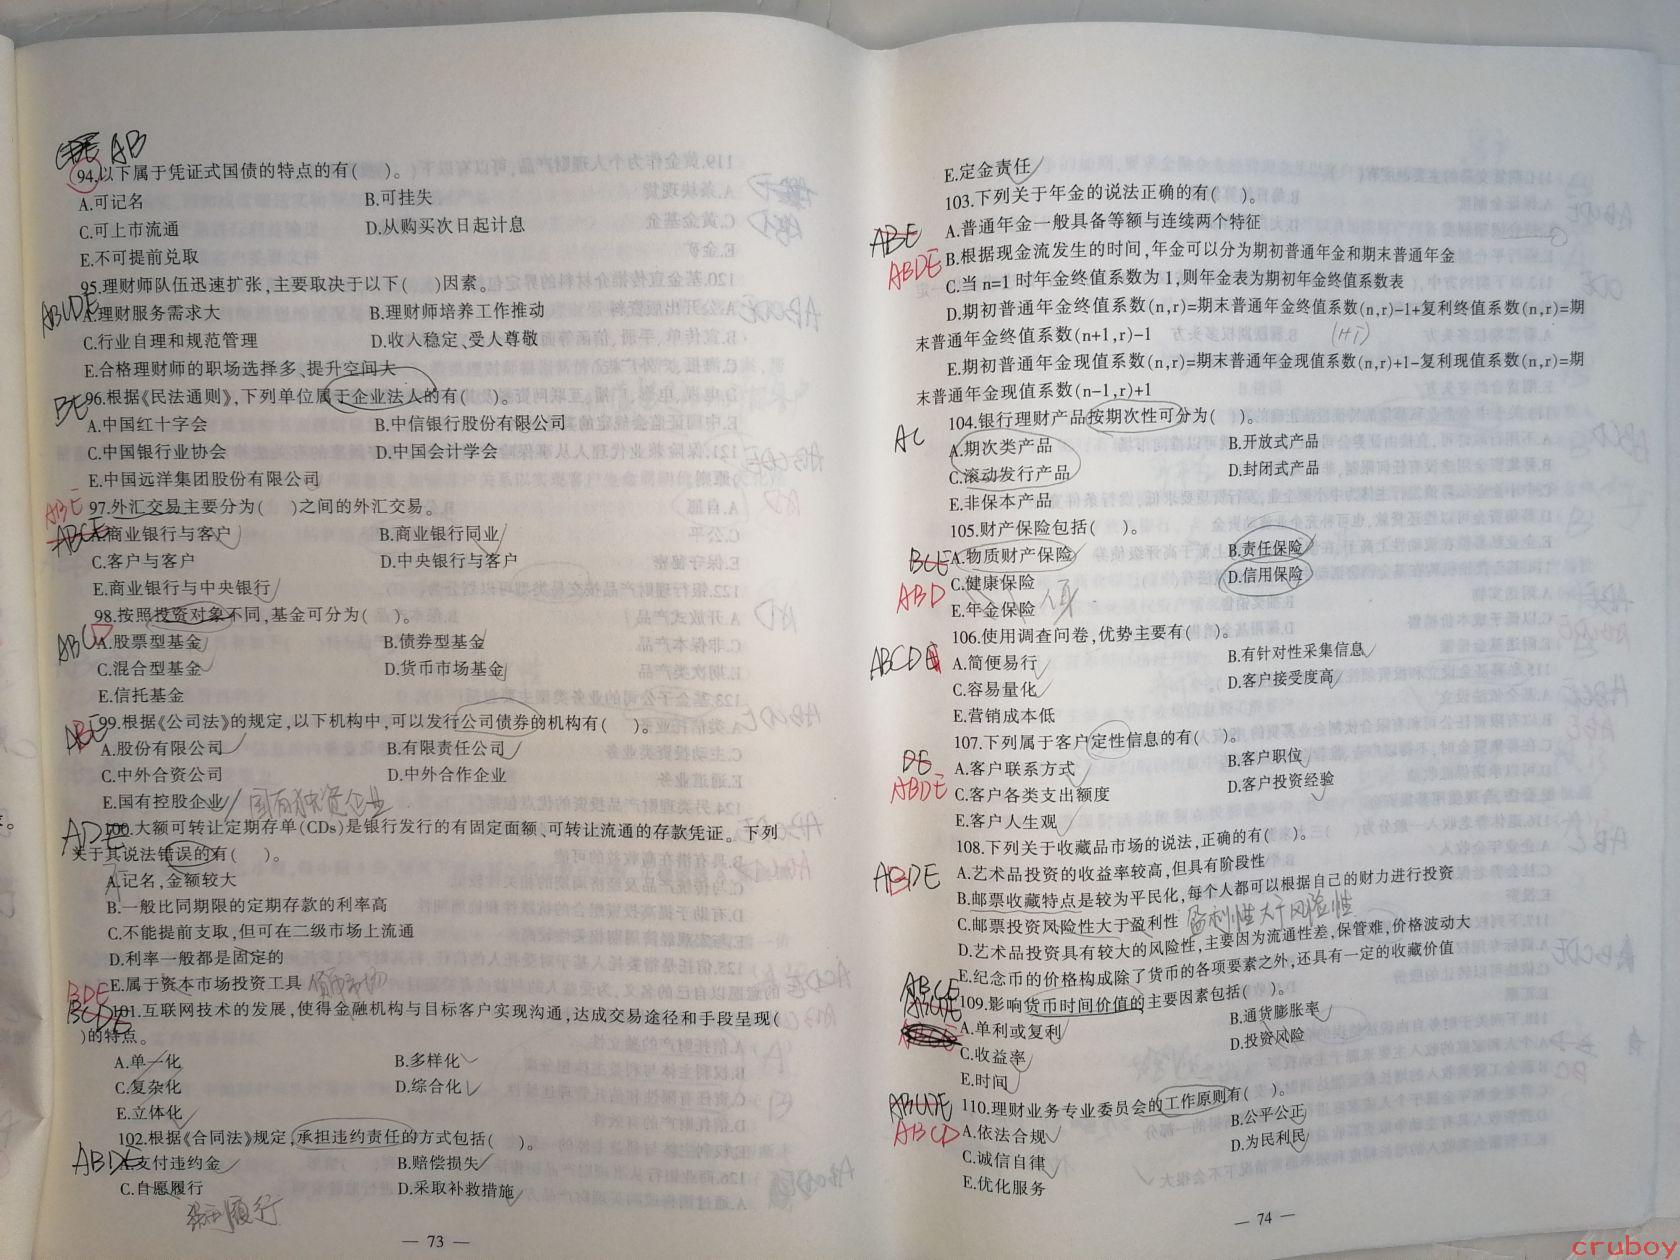 AB
94.以下属于凭证式国债的特点的有(    )。
A.可记名 B.可挂失
C.可上市流通 D.从购买次日起计息
E.不可提前兑取
95.理财师队伍迅速扩张,主要取决于以下(    )因素。
ABCDE
A.理财服务需求大 B.理财师培养工作推动
C.行业自理和规范管理 D.收入稳定、受人尊敬
E.合格理财师的职场选择多、提升空间大
BE
96.根据《民法通则》,下列单位属于企业法人的有(    )。
A.中国红十字会 B.中信银行股份有限公司
C.中国银行业协会 D.中国会计学会
E.中国远洋集团股份有限公司
ABE
97.外汇交易主要分为(    )之间的外汇交易。
ABCE
A.商业银行与客户 B.商业银行同业
C.客户与客户 D.中央银行与客户
E.商业银行与中央银行
98.按照投资对象不同,基金可分为(    )。
ABCD
A.股票型基金 B.债券型基金
C.混合型基金 D.货币市场基金
E.信托基金
ABE
99.根据《公司法》的规定,以下机构中,可以发行公司债券的机构有(    )。
A.股份有限公司 B.有限责任公司
C.中外合资公司 D.中外合作企业
E.国有控股企业 国有独资企业
ADE
100.大额可转让定期存单(CDs)是银行发行的有固定面额、可转让流通的存款凭证。下列
关于其说法错误的有(    )。
A.记名,金额较大
B.一般比同期限的定期存款的利率高
C.不能提前支取,但可在二级市场上流通
D.利率一般都是固定的
E.属于资本市场投资工具
BDE
BCDE
101.互联网技术的发展,使得金融机构与目标客户实现沟通,达成交易途径和手段呈现(
)的特点。
A.单一化 B.多样化
C.复杂化 D.综合化
E.立体化
102.根据《合同法》规定,承担违约责任的方式包括(    )。
ABDE
A.支付违约金 B.赔偿损失
C.自愿履行 D.采取补救措施
强制履行
— 73 —
E.定金责任
103.下列关于年金的说法正确的有(    )。
A.普通年金一般具备等额与连续两个特征
ABE
B.根据现金流发生的时间,年金可以分为期初普通年金和期末普通年金
ABDE
C.当 n=1 时年金终值系数为 1,则年金表为期初年金终值系数表
D.期初普通年金终值系数(n,r)=期末普通年金终值系数(n,r)-1+复利终值系数(n,r)=期
末普通年金终值系数(n+1,r)-1
E.期初普通年金现值系数(n,r)=期末普通年金现值系数(n,r)+1-复利现值系数(n,r)=期
末普通年金现值系数(n-1,r)+1
104.银行理财产品按期次性可分为(    )。
AC
A.期次类产品 B.开放式产品
C.滚动发行产品 D.封闭式产品
E.非保本产品
105.财产保险包括(    )。
BCE
A.物质财产保险 B.责任保险
ABD
C.健康保险 D.信用保险
E.年金保险 人身
106.使用调查问卷,优势主要有(    )。
ABCD
A.简便易行 B.有针对性采集信息
C.容易量化 D.客户接受度高
E.营销成本低
107.下列属于客户定性信息的有(    )。
DE
A.客户联系方式 B.客户职位
ABDE
C.客户各类支出额度 D.客户投资经验
E.客户人生观
108.下列关于收藏品市场的说法,正确的有(    )。
ABDE
A.艺术品投资的收益率较高,但具有阶段性
B.邮票收藏特点是较为平民化,每个人都可以根据自己的财力进行投资
C.邮票投资风险性大于盈利性 盈利性大于风险性
D.艺术品投资具有较大的风险性,主要因为流通性差,保管难,价格波动大
E.纪念币的价格构成除了货币的各项要素之外,还具有一定的收藏价值
ABCE
ABCDE
109.影响货币时间价值的主要因素包括(    )。
A.单利或复利 B.通货膨胀率
C.收益率 D.投资风险
E.时间
110.理财业务专业委员会的工作原则有(    )。
ABCDE
ABCD
A.依法合规 B.公平公正
C.诚信自律 D.为民利民
E.优化服务
— 74 —
cruboy